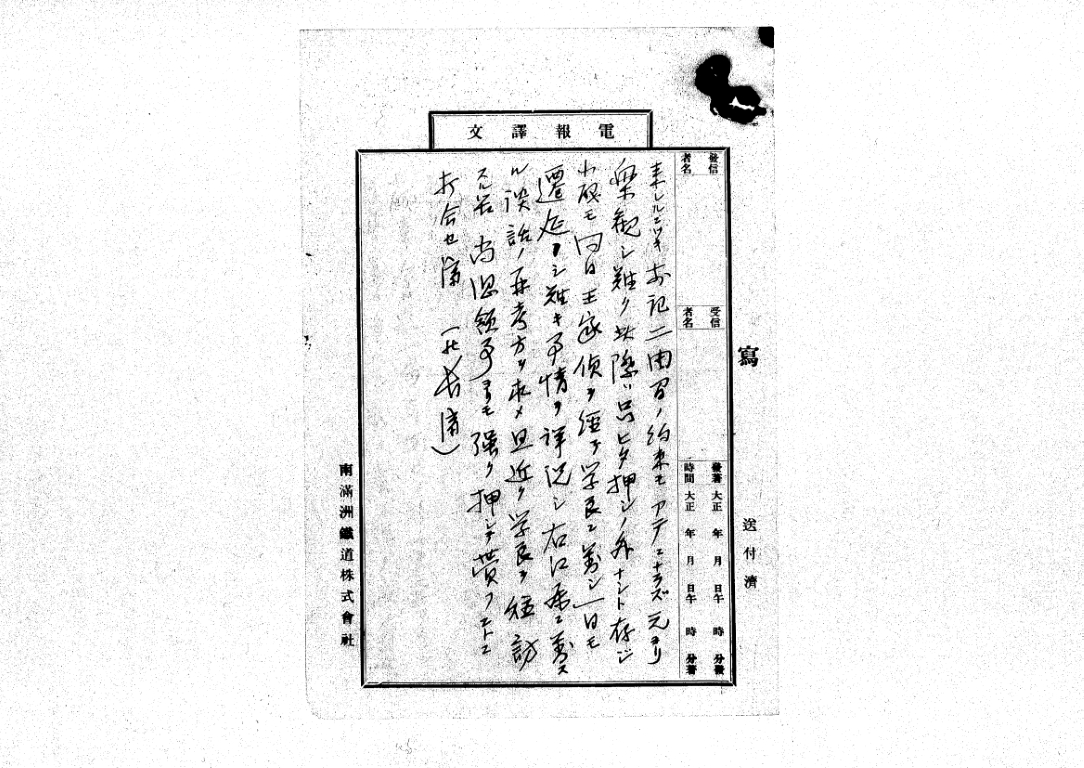 電報譯文
寫
送付濟
發信者名
受信者名
發著時間 大正 年 月 日午 時 分發
大正 年 月 日午 時 分著
来レルニツキ前記二週間ノ約束モアテニナラズ元ヨリ
楽観シ難ク此際ハ只ヒタ押シノ外ナシト存シ
小磯モ同日王家偵ヲ経テ学良ニ対シ一日モ
遷延ヲシ難キ事情ヲ詳説シ右江藤ニ対ス
ル誤話ノ再考方ヲ求メ且近ク学良ヲ往訪
スル筈尚総領事ヨリモ強ク押シテ貰フコトニ
打合セ済
南滿洲鐵道株式會社